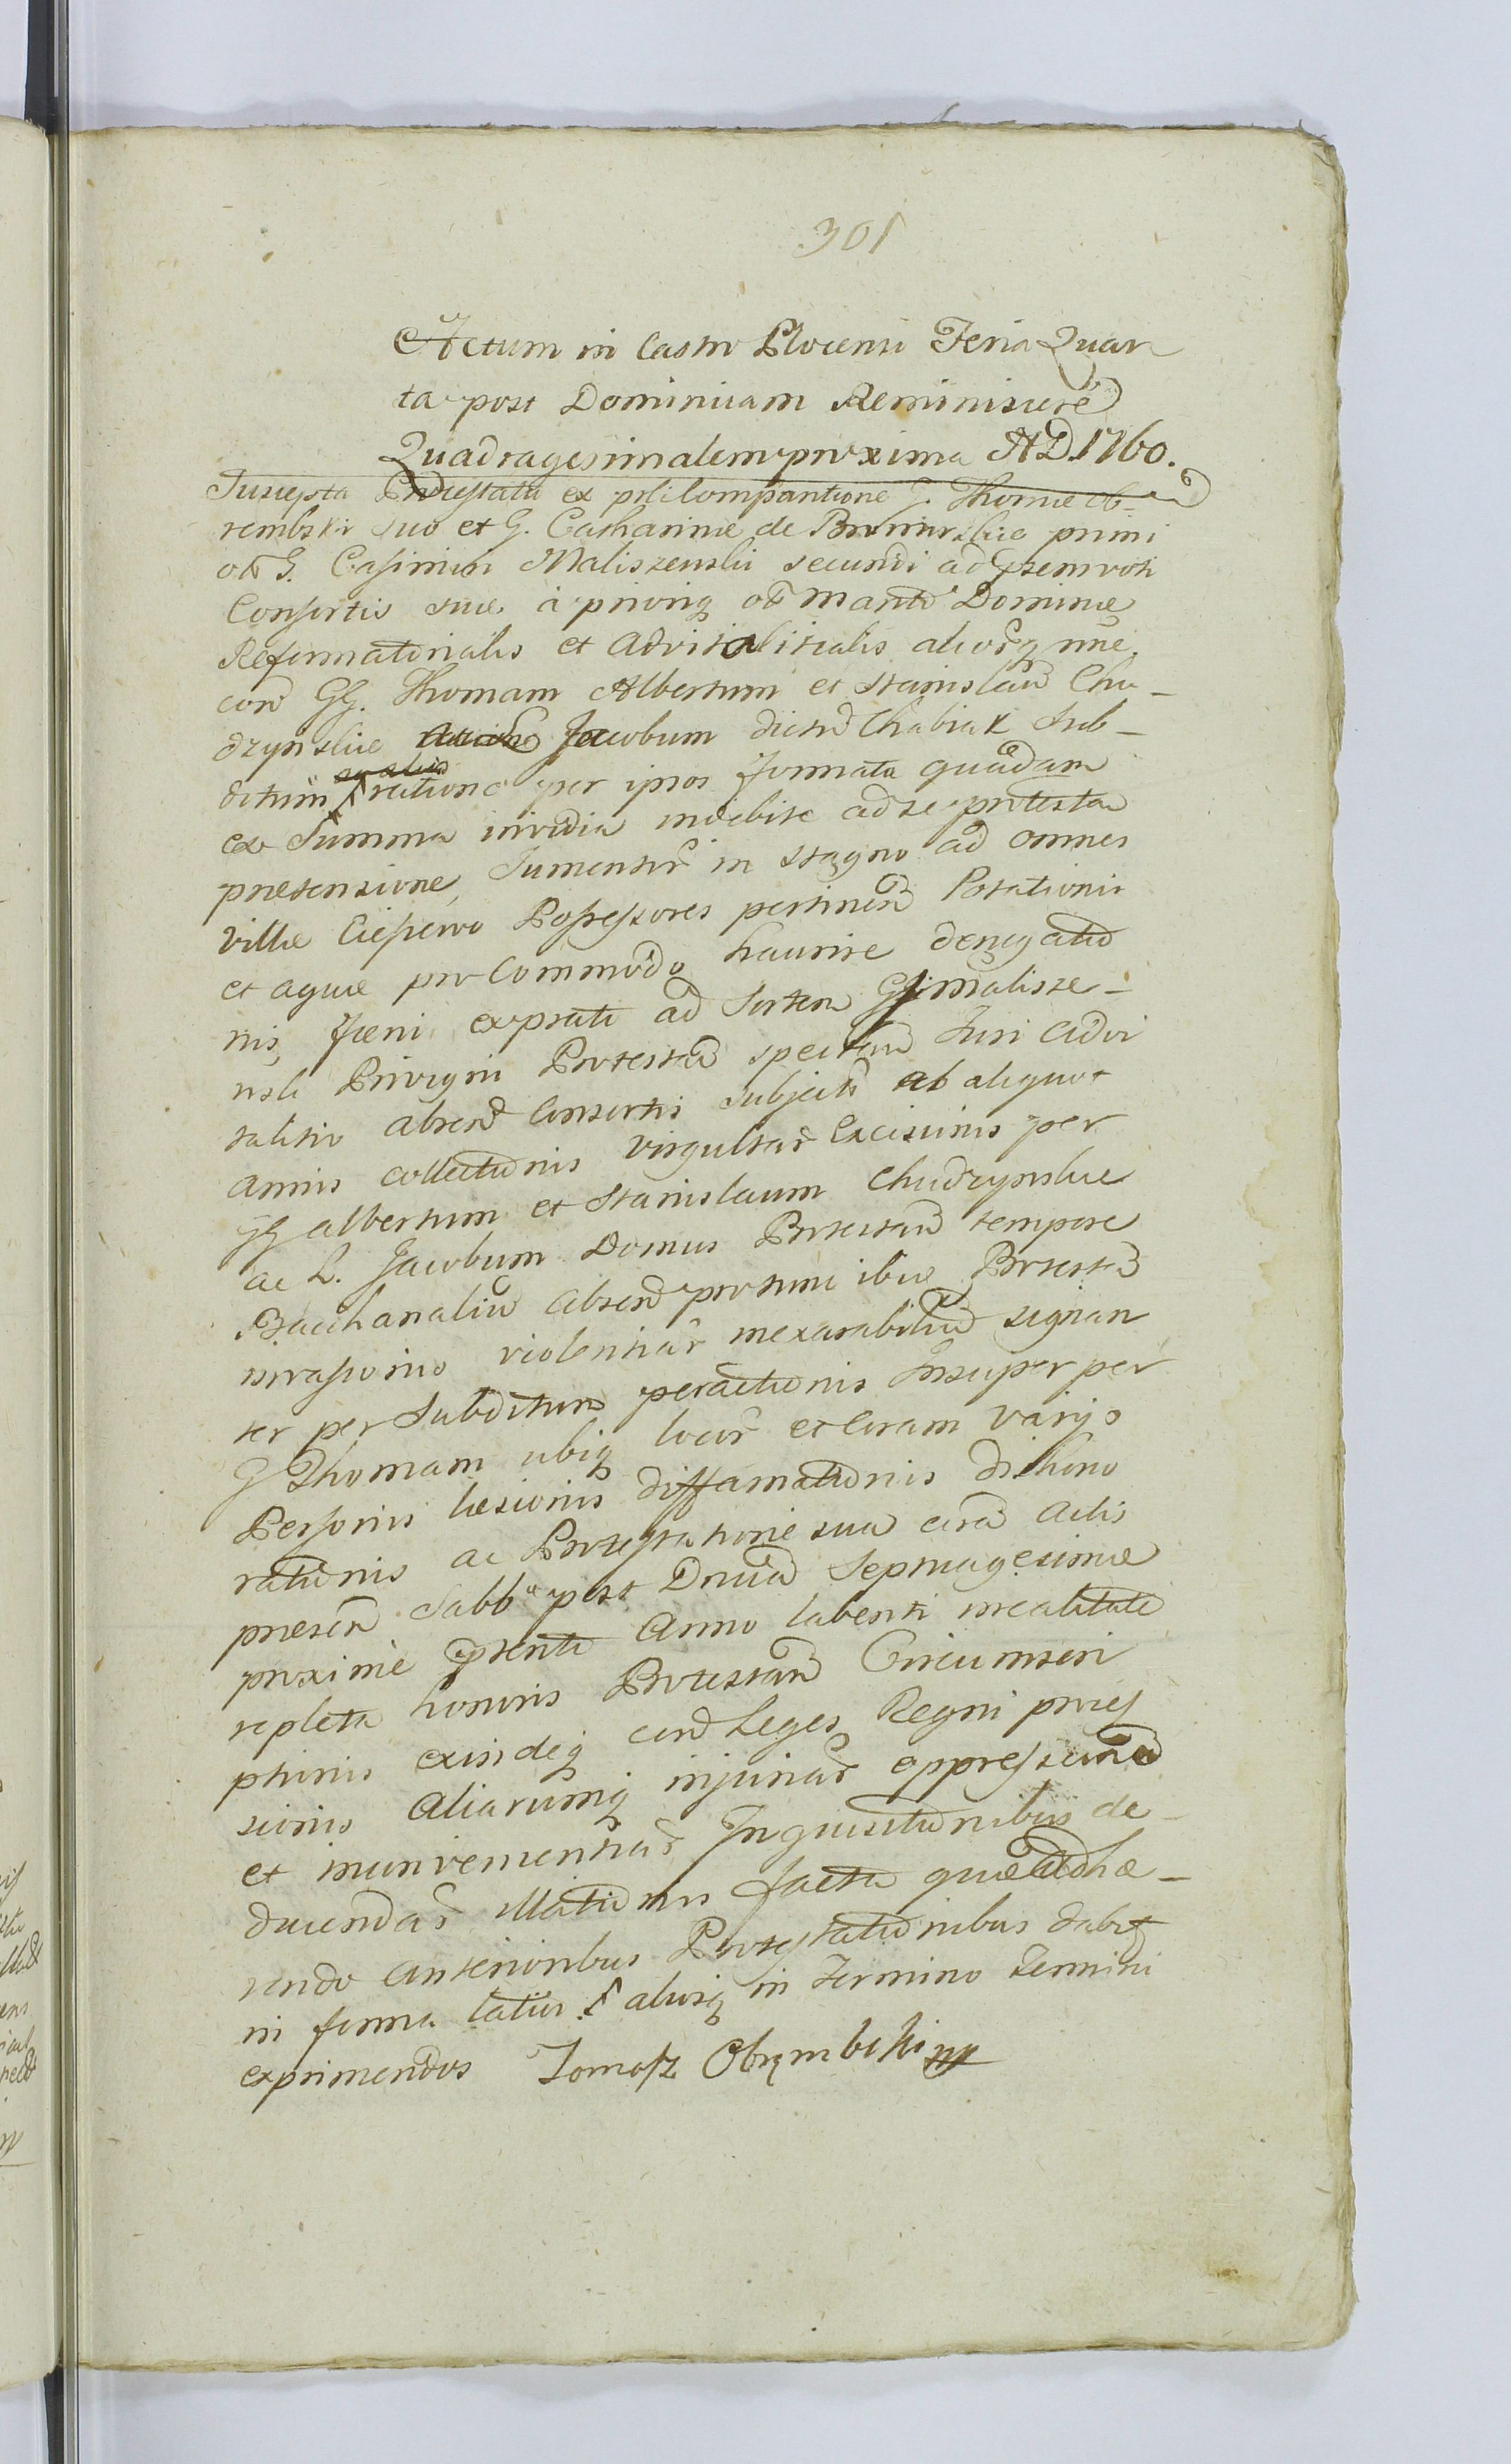 301
Actum in Castro Plocensi Feria Quar
ta post Dominicam Reminiscere
Quadragesimalem proxima AD 1760.
Suscepta Protestatio ex psli Compantione G. Thomæ Ob-
rembski suo et G. Catharinæ de primi
olim G. Casimiri Maliszewski secundi ad psens voti
Consortis suæ a priori olim Marito Dominæ
Reformatorialis et Advitalitialis aliorq nne.
con GG. Thomam Albertum et Stanislaum Chu-
dzynskie Jacobum dictum Chabiak Sub-
ditum ratione per ipsos formata quadam
ex Summa invidia indebite ad se protestan
prætensione, Jumentis in stagno ad omnes
Villæ Ciesżewo Possessores pertinen Potationis
et aquæ pro Commodo haurire denegatio
nis, fœni ex prato ad Sortem G Malisze-
wski Privigni Protestan spectan Juri advi
talitio Consortis subjecto ab aliquot
annis collectionis virgultar Excisionis per
GG Albertum et Stanislaum Chudzynskie
ac L. Jacobum Domus Protestan tempore
Bacchanaliu absen pro tunc ibid Protestan
invasionis violentiar inexarabilium signan
ter per Subditum peractionis Insuper per
G Thomam ubiq locor et Coram varijs
Personis læsionis diffamationis dishono
rationis ac Protestatione sua coram Actis
præsen Sabbo post Dnicam Septuagesimæ
proxime psenti Anno labenti incalitate
repleta honoris Protestan Circumscri
ptionis exindeq con Leges Regni prœs
sionis Aliarumq injuriar oppressionu
et inconvenientiar Inquisitionibus de-
ducendar illationis facta quæ adhæ-
rendo anterioribus Protestationibus dabit
in forma latior S alusq in Termino Termini
exprimendos Tomasz Obrębski mp